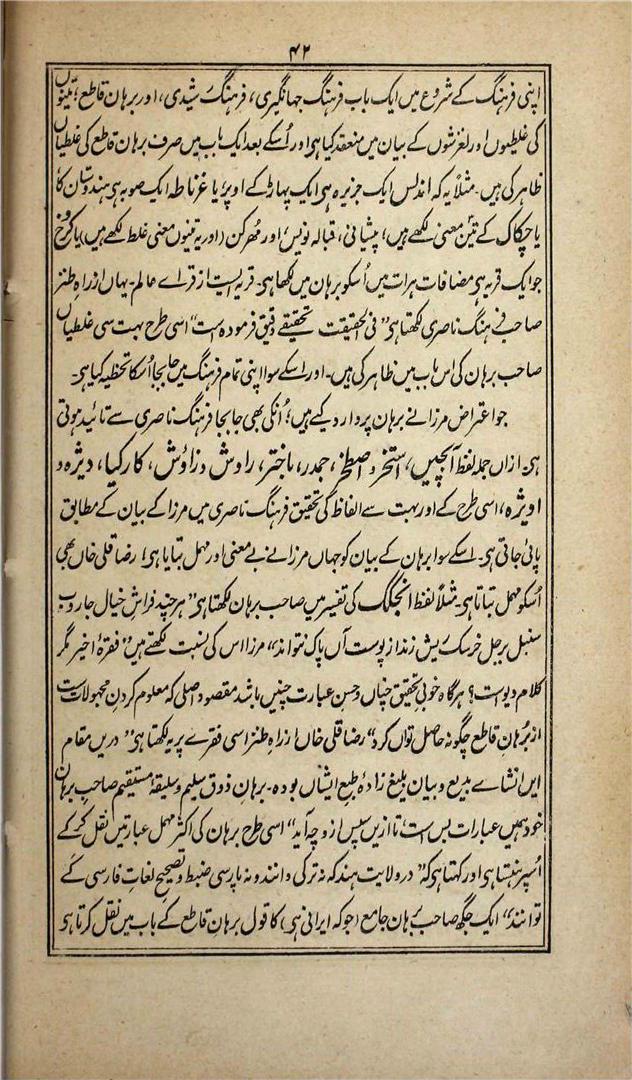 ۴۲
اپنی فرہنگ کے شروع میں ایک باب فرہنگ جہانگیری، فرہنگ رشیدی، اور برہان قاطع؛ تینوں
کی غلطیوں اور لغزشوں کے بیان میں منعقد کیا ہی اور اُسکے بعد ایک باب میں صرف برہان قاطع کی غلطیاں
ظاہر کی ہیں۔ مثلاً یہ کہ اندلس ایک جزیرہ ہی ایک پہاڑ کے اوپر؛ یا غرناطہ ایک صوبہ ہی ہندوستان کا
یا چکاک کے تین معنی لکھے ہیں؛ پیشانی، قبالہ نویس، اور مُہر کن (اور یہ تینوں معنی غلط لکھے ہیں) یا کروخ
جو ایک قریہ ہی مضافات ہرات میں اُسکو برہان میں لکھا ہی۔ قریہ ایست از قراے عالم۔ یہاں ازراہِ طنز
صاحب فرہنگ ناصری لکھتا ہی "فی الحقیقت تحقیقے دقیق فرمودہ است" اسی طرح بہت سی غلطیاں
صاحب برہان کی اس باب میں ظاہر کی ہیں۔ اور اسکے سوا اپنی تمام فرہنگ میں جابجا اُسکا تخطیہ کیا ہی۔
جو اعتراض مرزا نے برہان پر وارد کیے ہیں؛ اُنکی بھی جابجا فرہنگ ناصری سے تائید ہوتی
ہی۔ ازاں جملہ لفظ آبچیں، استخر و اصطخر، جمدر، باختر، راوش و زاوش، کارکیا، دیژہ و
اویژہ، اسی طرح کے اور بہت سے الفاظ کی تحقیق فرہنگ ناصری میں مرزا کے بیان کے مطابق
پائی جاتی ہی۔ اسکے سوا برہان کے بیان کو جہاں مرزا نے بے معنی اور مہمل بتایا ہی؛ رضا قلی خاں بھی
اُسکو مہمل بتاتا ہی۔ مثلاً لفظ انجلک کی تفسیر میں صاحب برہان لکھتا ہی "ہر چند فراشِ خیال جاروب
سنبل برجل خرسک ریش زند از پوست آں پاک نتواند" مرزا اس کی نسبت لکھتے ہیں "فقرۂ اخیر مگر
کلام دیوست؟ ہرگاہ خوبیِ تحقیق چناں و حسنِ عبارت چنیں باشد مقصود اصلی کہ معلوم کردنِ مجہولات ست
از برہانِ قاطع چگونہ حاصل تواں کرد" رضا قلی خاں ازراہِ طنز اسی فقرے پر یہ لکھتا ہی "دریں مقام
ایں انشاے بدیع و بیان بلیغ زادۂ طبع ایشاں بودہ۔ برہانِ ذوق سلیم و سلیقۂ مستقیم صاحب برہان
خود ہمیں عبارات بس است تا ازیں سپس ازو چہ آید" اسی طرح برہان کی اکثر مہمل عبارتیں نقل کرکے
اُسپر ہنستا ہی اور کہتا ہی کہ "در ولایت ہند کہ نہ ترکی دانند و نہ پارسی ضبط و تصحیحِ لغات فارسی کے
توانند" ایک جگہ صاحب برہان جامع (جو کہ ایرانی ہی) کا قول برہان قاطع کے باب میں نقل کرتا ہی